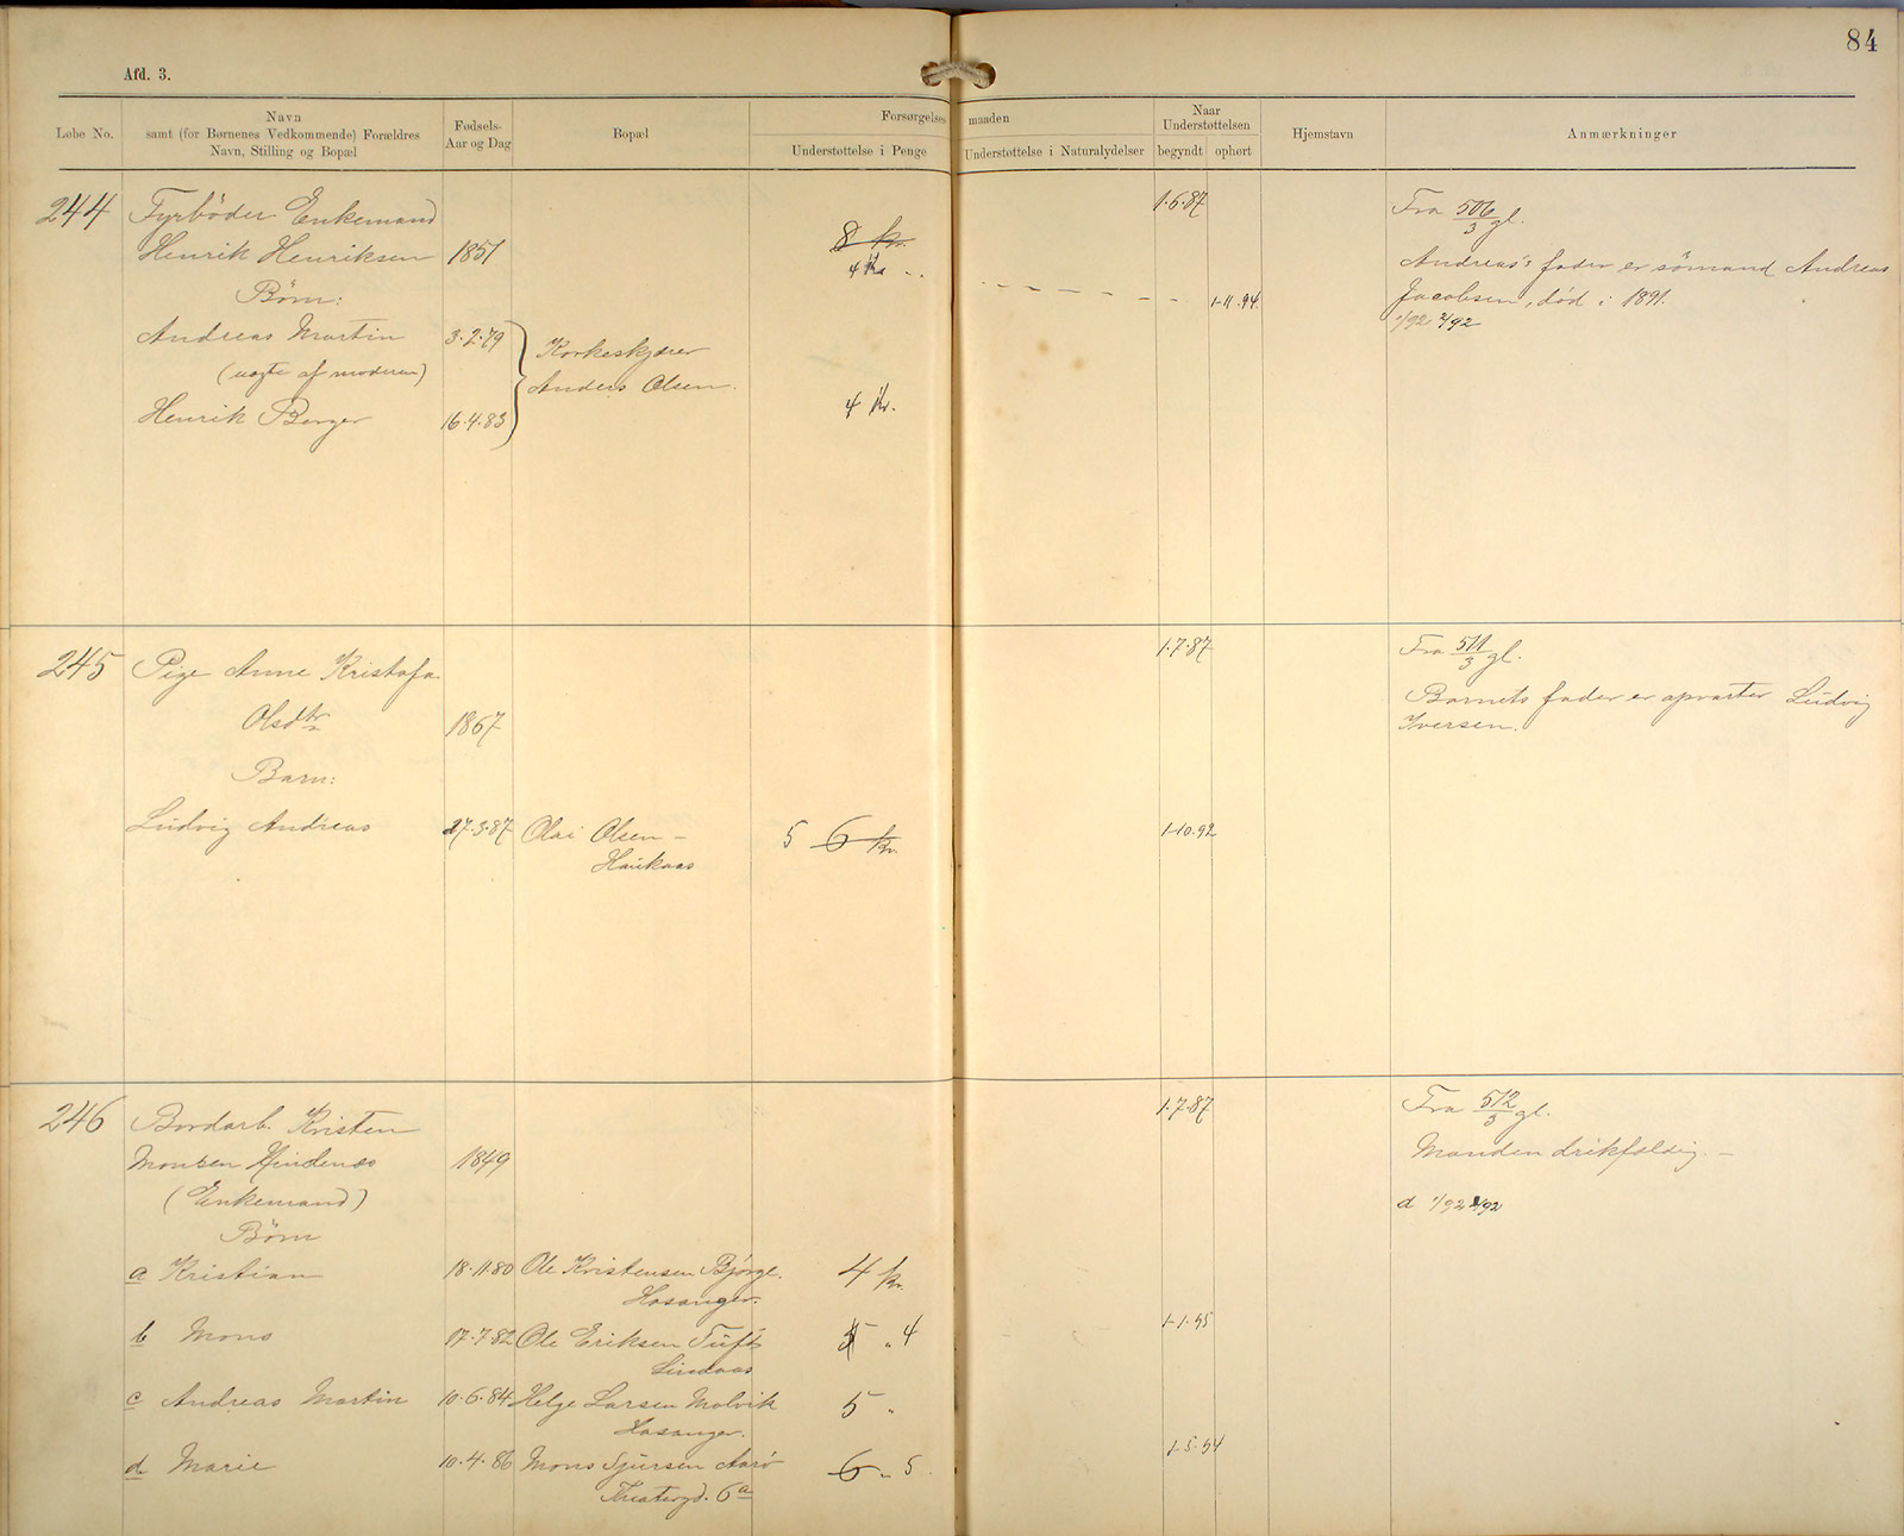 84
Afd. 3.
Løbe No.
Navn
samt (for Børnenes Vedkommende) Forældres
Navn, Stilling og Bopæl
Fødsels-
Aar og Dag
Bopæl
Forsørgelses maaden
Understøttelse i Penge
Understøttelse i Naturalydelser
Naar
Understøttelsen
begyndt
ophørt
Hjemstavn
Anmærkninger
244 Fyrbøder Enkemand 1.6.87 Fra 506/3 gl.
Henrik Henriksen 1851 8 kr.
4 Kr Andreas's fader er sømand Andreas
Børn: 1-11.94. Jacobsen, død i 1891.
1/92 2/92
Andreas Martin 3.2.79 Korkeskjærer
(uægte af moderen) Anders Olsen.
Henrik Berger 16.4.83 4 Kr.
245 Pige Anne Kristofa 1.7.87 Fra 511/3 gl.
Olsdtr 1867 Barnets fader er opvarter Ludvig
Iversen.
Barn:
Ludvig Andreas 27.3.87 Olai Olsen – 5 6 kr. 1-10.92
Haukaas
246 Bordarb. Kristen 1.7.87 Fra 512/3 gl.
Monsen Hindenes 1849 Manden drikfældig. –
(Enkemand) d 1/92 2/92
Børn
a Kristian 18.11.80 Ole Kristensen Bjørge. 4 kr.
Hosanger.
b Mons 17.7.82 Ole Eriksen Tufte 5 " 4 1-1.95
Lindaas
c Andreas Martin 10.6.84 Helge Larsen Molvik 5 "
Hosanger.
d Marie 10.4.86 Mons Sjursen Aarø 6 " 5. 1-5-94
Theatergd. 6a